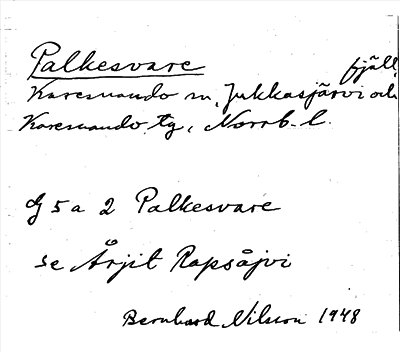 Palkesvare fjäll,
Karesuando sn, Jukkasjärvi och
Karesuando tg, Norrb. l.
G 5 a 2 Palkesvare
se Årjit Rapsåjvi
Bernhard Nilsson 1948